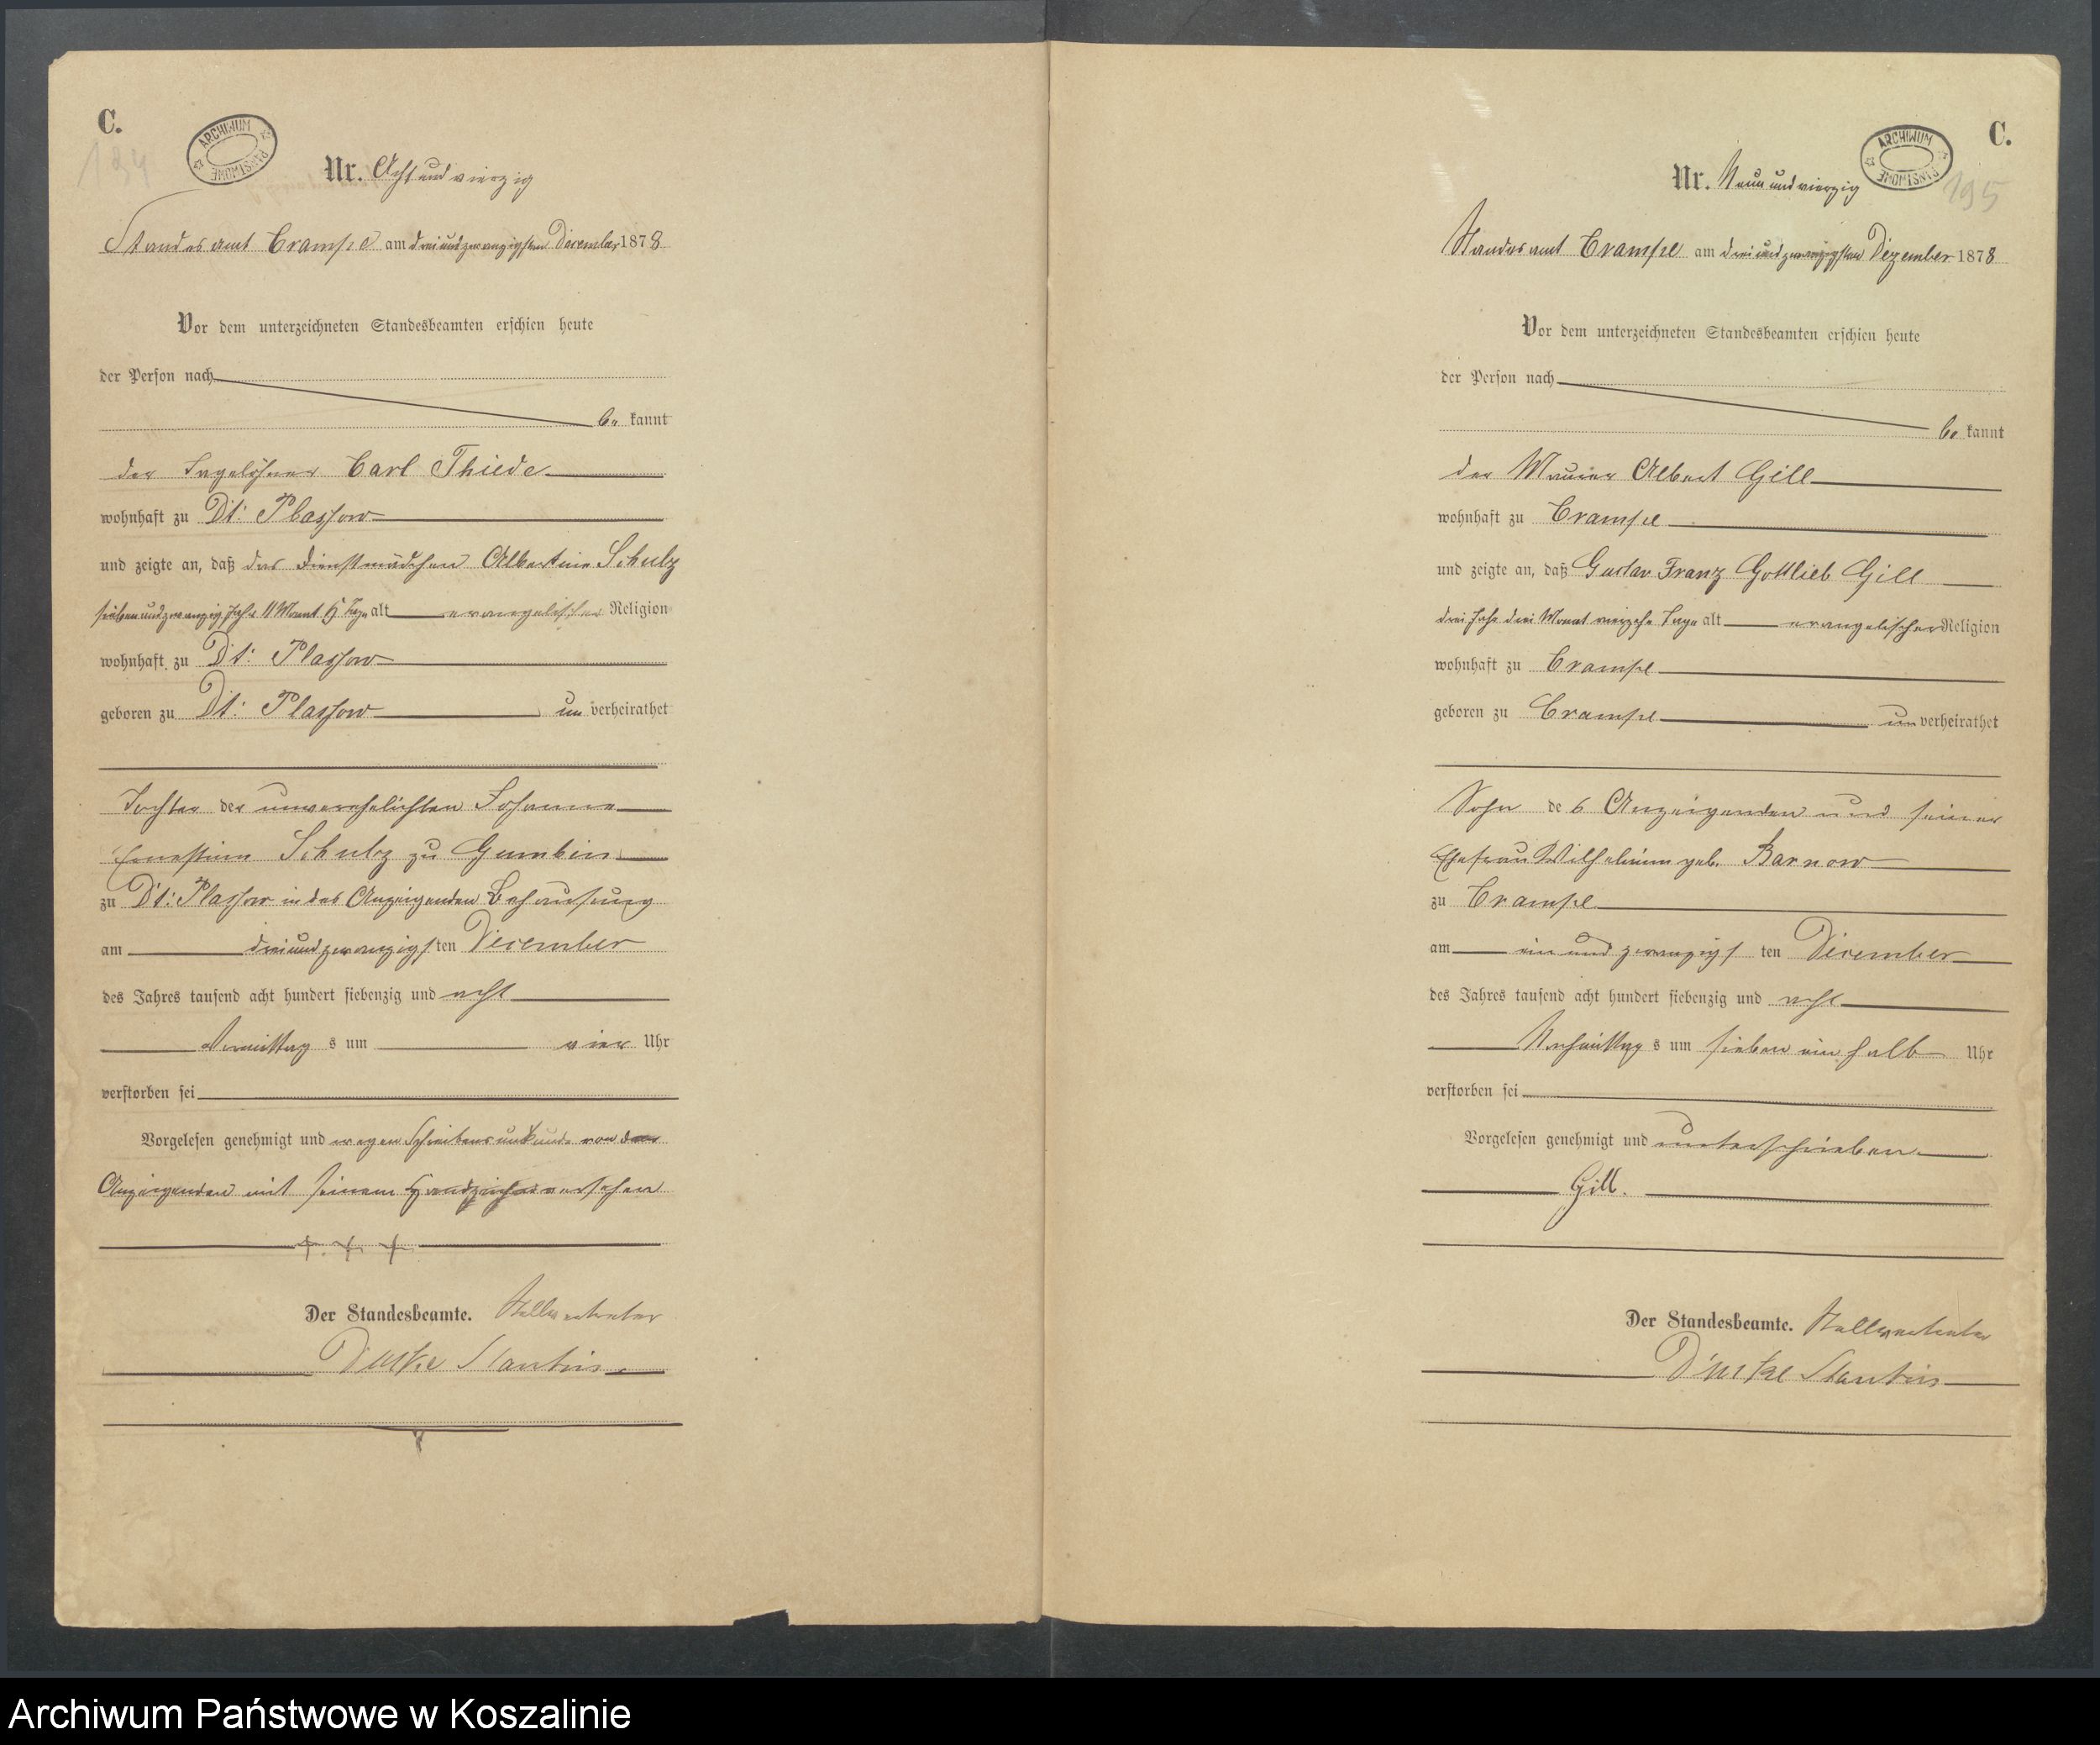 C.
194
ARCHIWUM PAŃSTWOWE
Nr. Achtundvierzig
Standesamt Crampe am dreiundzwanzigsten December 1878
Vor dem unterzeichneten Standesbeamten erschien heute
der Person nach
be kannt
der Tagelöhner Carl Thiede
wohnhaft zu Dt: Plassow
und zeigte an, daß das Dienstmädchen Albertine Schulz
siebenundzwanzig Jahr 11 Monat 5 Tage alt evangelischer Religion
wohnhaft zu Dt: Plassow
geboren zu Dt: Plassow un verheirathet
Tochter der unverehelichten Johanne
Ernestine Schulz zu Gumbin
zu Dt: Plassow in des Anzeigenden Behausung
am dreiundzwanzigsten December
des Jahres tausend acht hundert siebenzig und acht
Vormittag s um vier Uhr
verstorben sei
Vorgelesen genehmigt und wegen Schreibensunkunde von dem
Anzeigenden mit seinem Handzeichen versehen
+ + +
Der Standesbeamte. Stellvertreter
Stantin
C.
195
ARCHIWUM PAŃSTWOWE
Nr. Neunundvierzig
Standesamt Crampe am dreiundzwanzigsten Dezember 1878
Vor dem unterzeichneten Standesbeamten erschien heute
der Person nach
be kannt
der Maurer Albert Gill
wohnhaft zu Crampe
und zeigte an, daß Gustav Franz Gottlieb Gill
drei Jahr drei Monat vierzehn Tage alt evangelischer Religion
wohnhaft zu Crampe
geboren zu Crampe un verheirathet
Sohn des Anzeigenden und seiner
Ehefrau Wilhelmine geb. Barnow
zu Crampe
am einundzwanzigsten December
des Jahres tausend acht hundert siebenzig und acht
Nachmittag s um sieben ein halb Uhr
verstorben sei
Vorgelesen genehmigt und unterschrieben
Gill.
Der Standesbeamte. Stellvertreter
Stantin
Archiwum Państwowe w Koszalinie